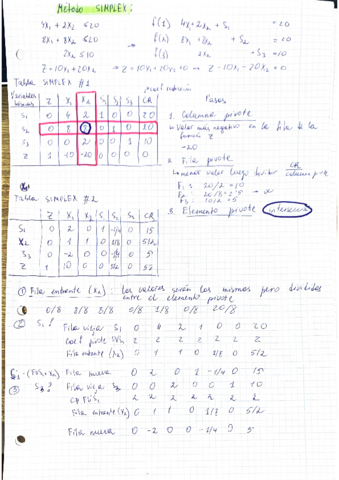 Método SIMPLEX:
4X1 + 2X2 ≤ 20
f(1) 4X1 + 2X2 + S1 = 20
8X1 + 8X2 ≤ 20
f(2) 8X1 + 8X2 + S2 = 20
2X2 ≤ 10
f(3) 2X2 + S3 = 10
Z = 10X1 + 20X2 → Z - 10X1 - 20X2 = 0
Tabla SIMPLEX #1
Variables
Z X1 X2 S1 S2 S3 CR
S1 0 4 2 1 0 0 20
S2 0 8 8 0 1 0 20
S3 0 0 2 0 0 1 10
Z 1 -10 -20 0 0 0 0
Pasos
1. Columna pivote
Valor más negativo en la fila de la
Z
-20
2. Fila pivote
menor valor luego dividir CR
columna pivote
F1: 20/2 = 10
3. Elemento pivote intersección
Tabla SIMPLEX #2
Z X1 X2 S1 S2 S3 CR
S1 0 2 0 1 -1/4 0 15
X2 0 1 1 0 1/8 0 5/2
S3 0 -2 0 0 -1/4 0 5
Z 1 10 0 0 5/2 0 52
① Fila entrante (X2): los valores serán los mismos pero divididos
entre el elemento pivote
0/8 8/8 8/8 0/8 1/8 0/8 20/8
② S1: Fila vieja S1 0 4 2 1 0 0 20
2 2 2 2 2 2 2
Fila entrante (X2) 0 1 1 0 1/8 0 5/2
Fila nueva 0 2 0 1 -1/4 0 15
③ Fila vieja 0 0 2 0 0 1 10
2 2 2 2 2 2 2
Fila entrante (X2) 0 1 1 0 1/8 0 5/2
Fila nueva 0 -2 0 0 -1/4 0 5